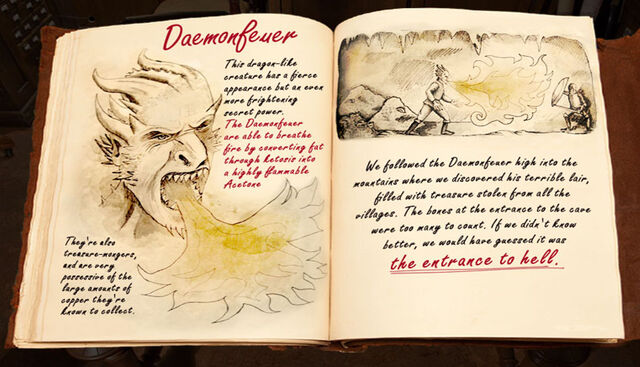 Daemonfeuer
This dragon-like
creature has a fierce
appearance but an even
more frightening
secret power.
The Daemonfeuer
are able to breathe
fire by converting fat
through ketosis into
a highly flammable
Acetone
They're also
treasure-mongers,
and are very
possessive of the
large amounts of
copper they're
known to collect.
We followed the Daemonfeuer high into the
mountains where we discovered his terrible lair,
filled with treasure stolen from all the
villages. The bones at the entrance to the cave
were too many to count. If we didn't know
better, we would have guessed it was
the entrance to hell.